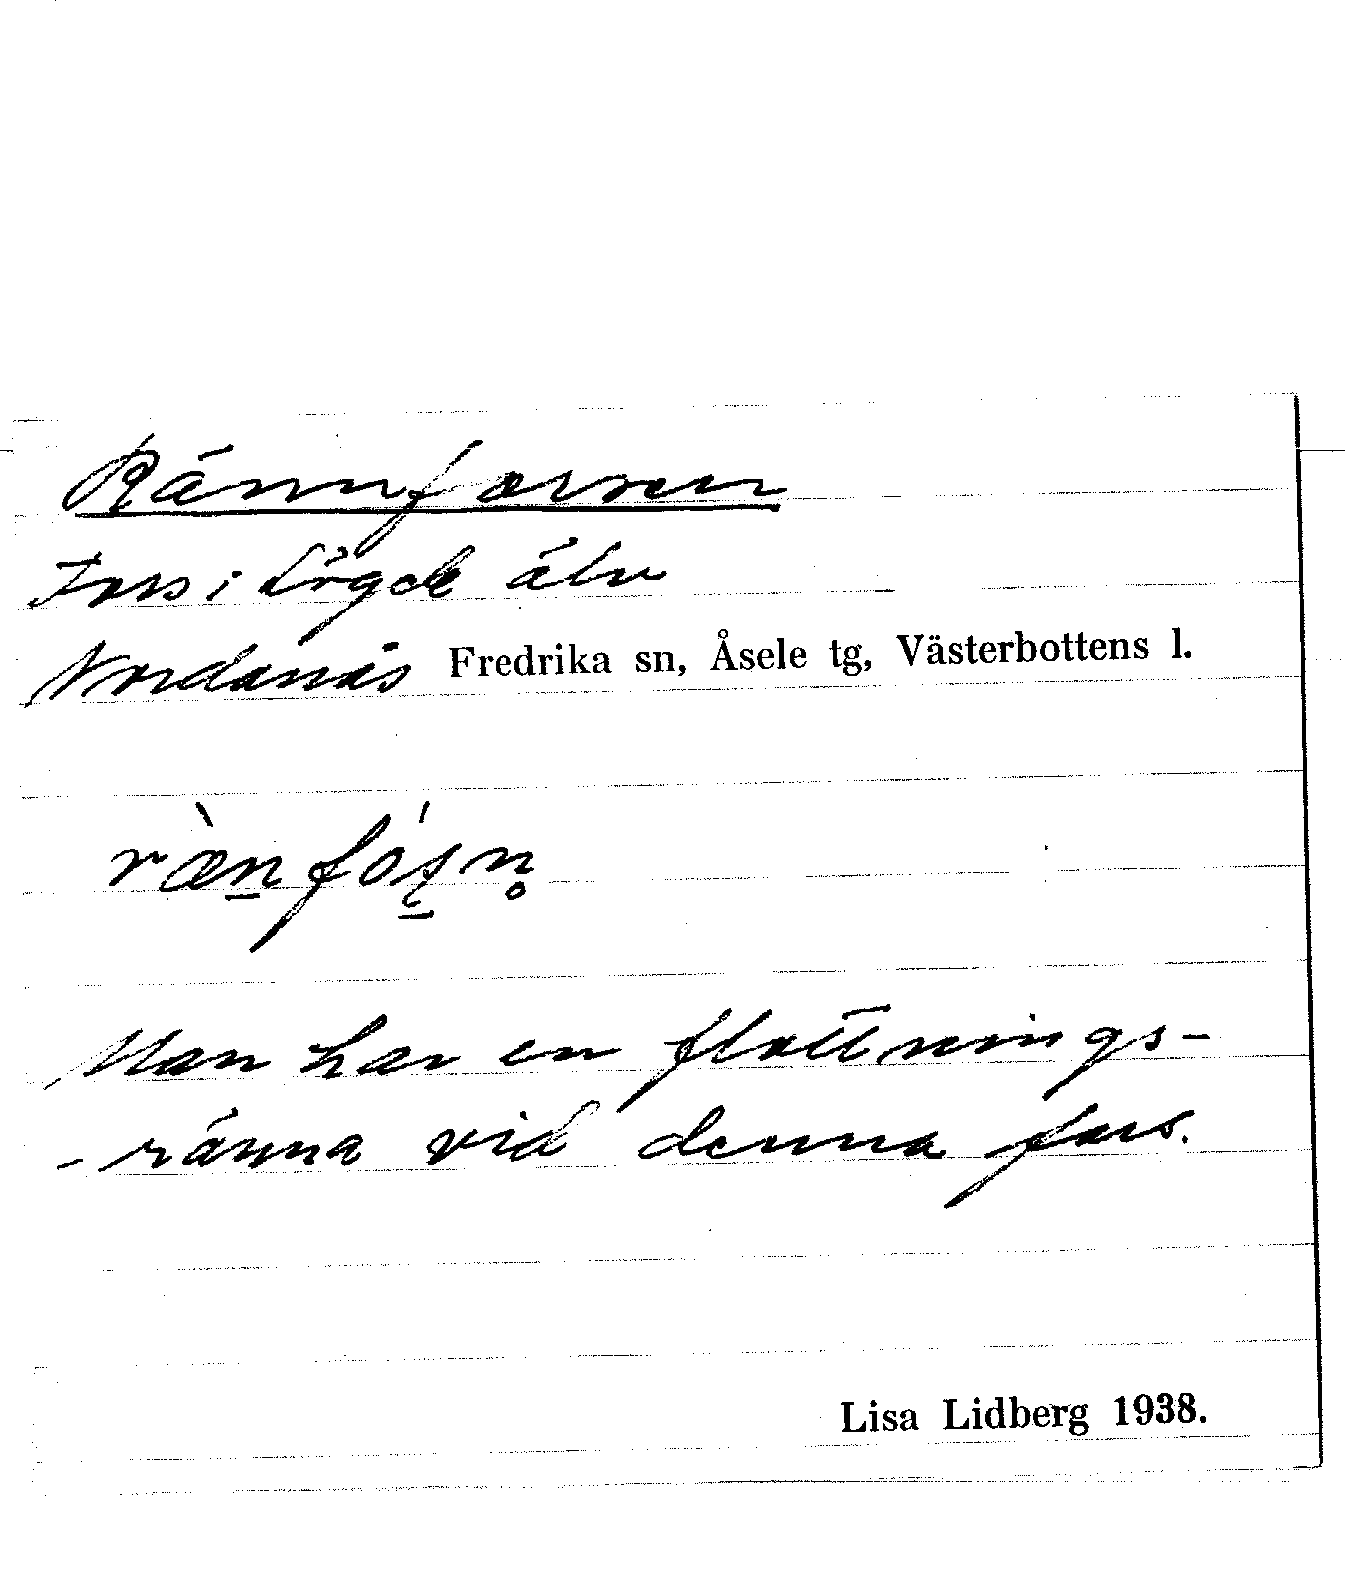 Rännforsen
Fors i Lögde älv
Nordanås Fredrika sn, Åsele tg, Västerbottens l.
ræ̀n̲fóʂ̲n̥
Man har en flottnings-
-ränna vid denna fors.
Lisa Lidberg 1938.